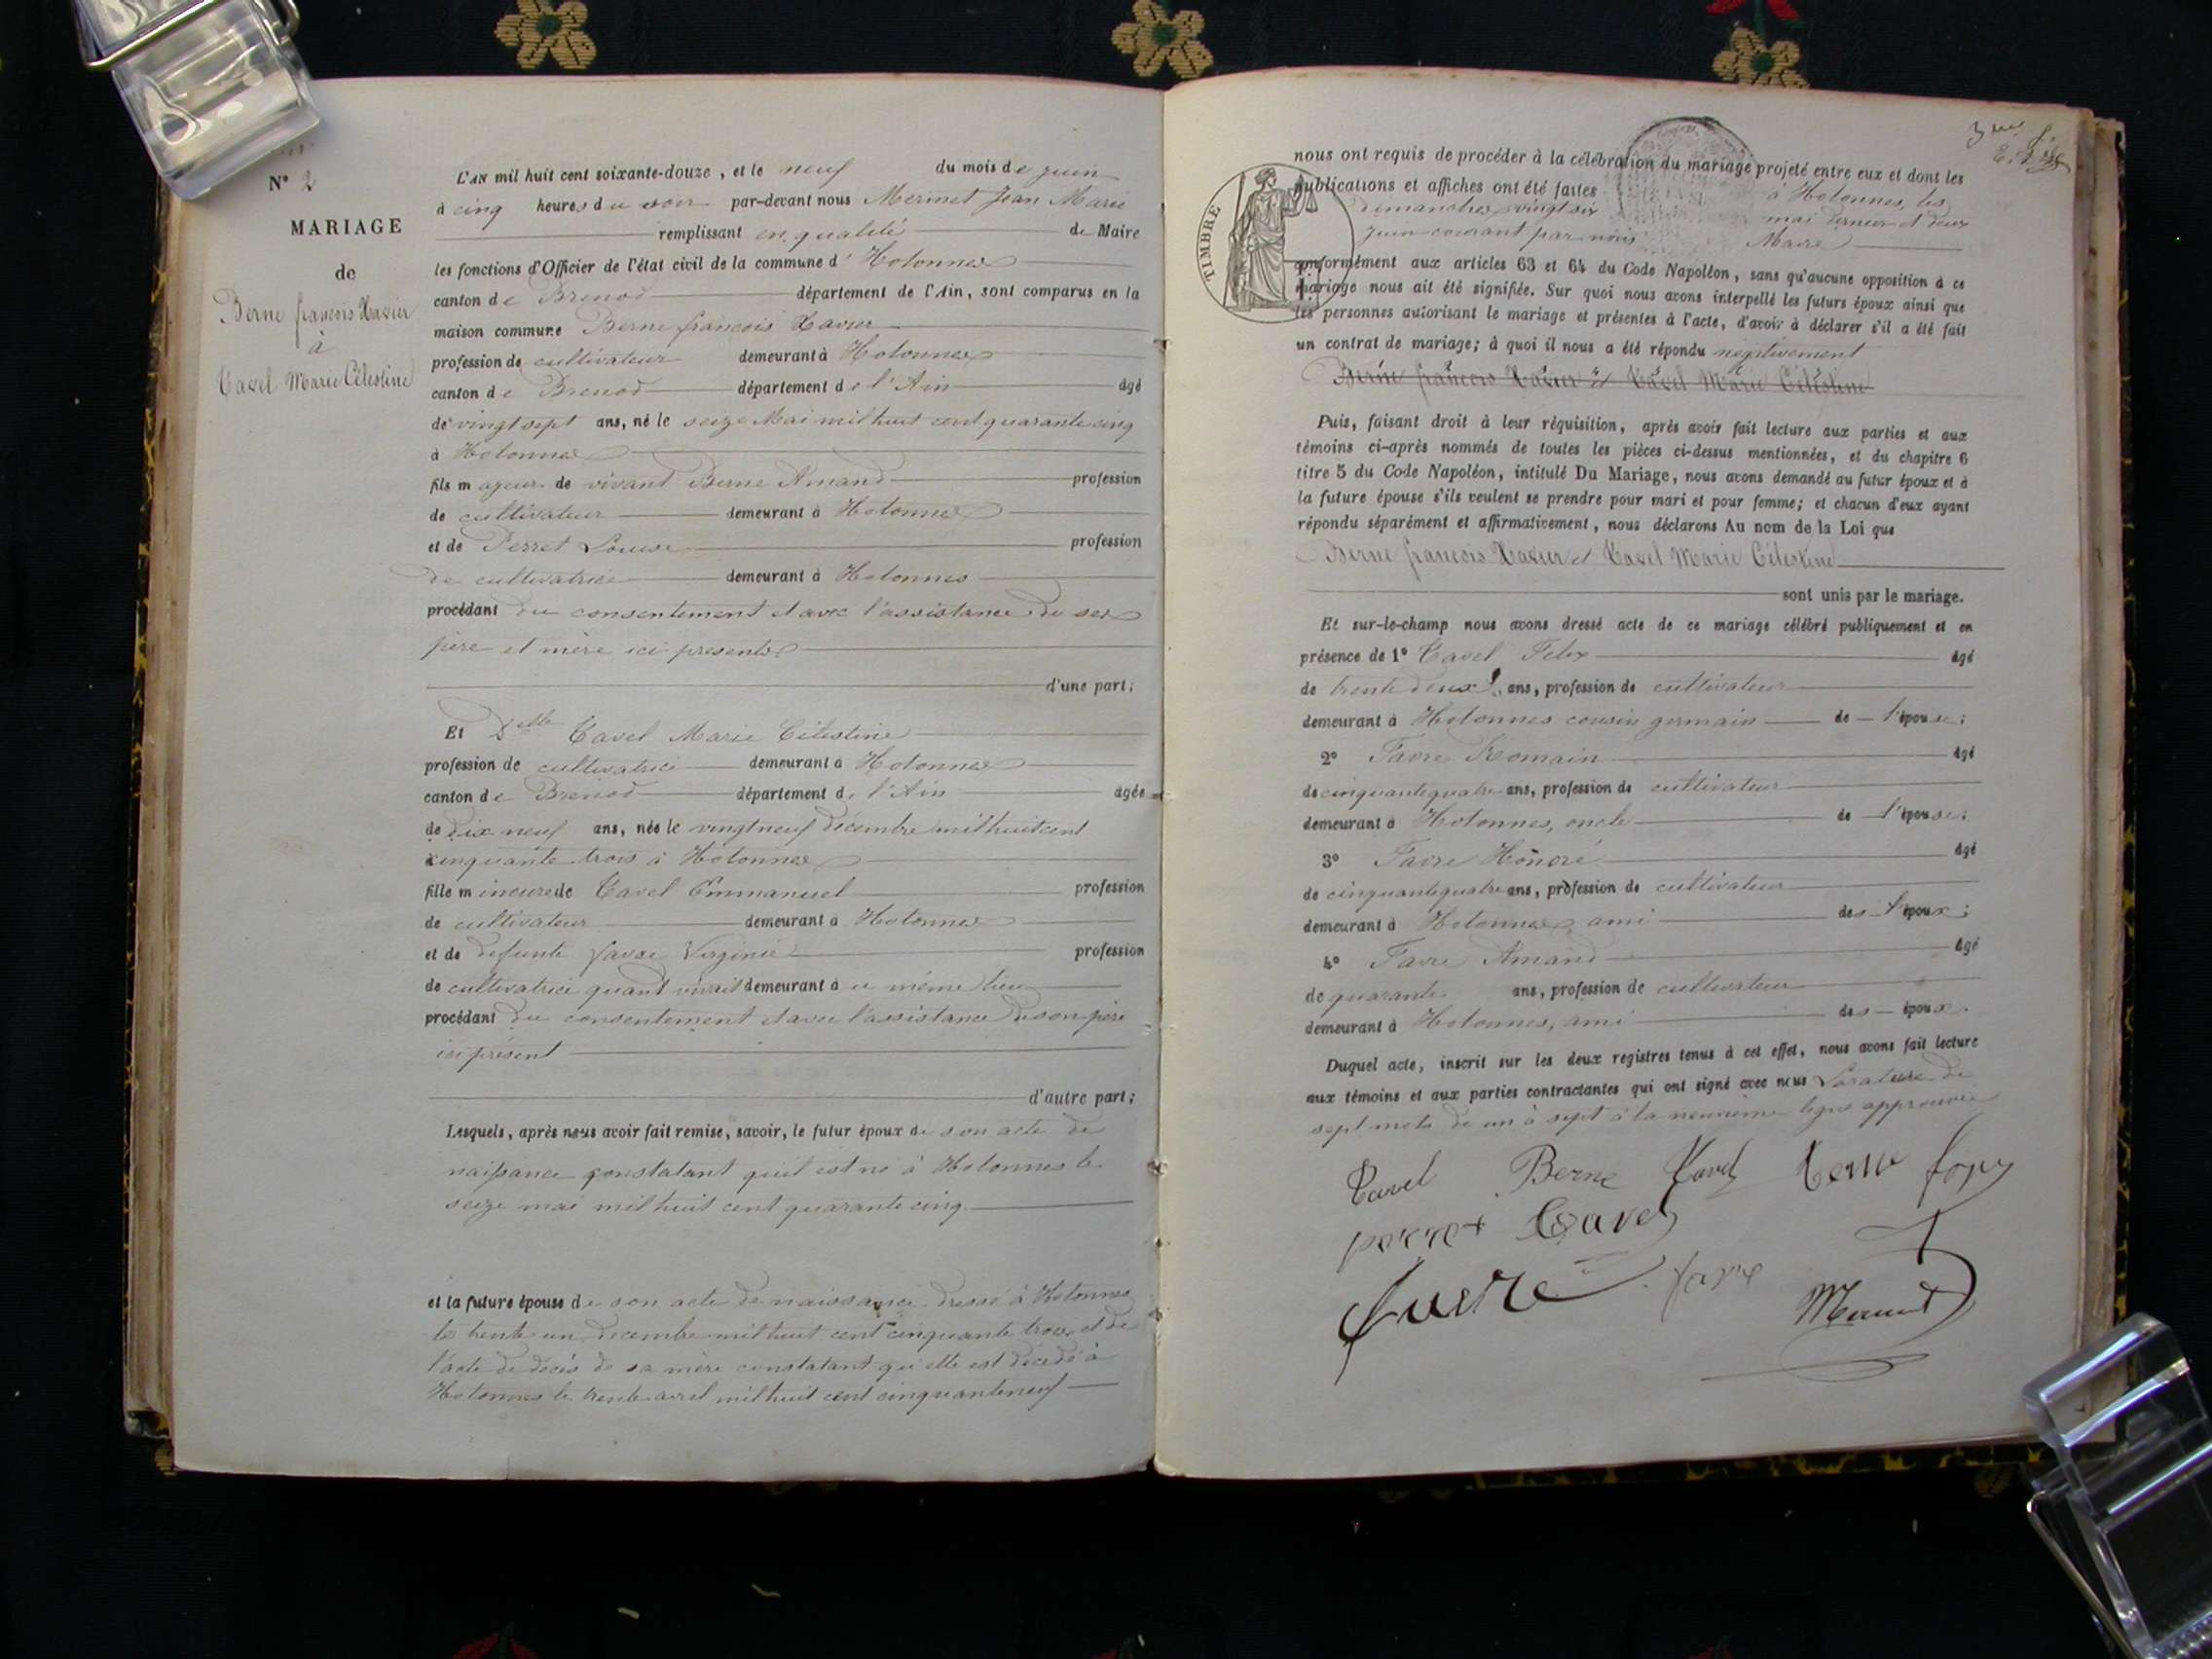 N° 2
MARIAGE
de
Berne françois Xavier
à
Tavel Marie Célestine
L'AN mil huit cent soixante-douze, et le neuf du mois de juin
à cinq heures du soir par-devant nous Mermet Jean Marie
remplissant en qualité de Maire
les fonctions d'Officier de l'état civil de la commune d' Hotonnes
canton de Brenod département de l'Ain, sont comparus en la
maison commune Berne françois Xavier
profession de cultivateur demeurant à Hotonnes
canton de Brenod département de l'Ain âgé
de vingt sept ans, né le seize Mai mil huit cent quarante cinq
à Hotonnes
fils majeur de vivant Berne Amand profession
de cultivateur demeurant à Hotonnes
et de Perret Louise profession
de cultivatrice demeurant à Hotonnes
procédant du consentement et avec l'assistance de ses
père et mère ici présents
d'une part;
Et Delle Tavel Marie Célestine
profession de cultivatrice demeurant à Hotonnes
canton de Brenod département de l'Ain âgée
de dix neuf ans, née le vingt neuf decembre mil huit cent
cinquante trois à Hotonnes
fille mineure de Tavel Emmanuel profession
de cultivateur demeurant à Hotonnes
et de defunte favre Virginie profession
de cultivatrice quant vivait demeurant à u même lieu
procédant du consentement et avec l'assistance de son père
ici présent
d'autre part;
Lesquels, après nous avoir fait remise, savoir, le futur époux de son acte de
naissance constatant qu'il est né à Hotonnes le
seize mai mil huit cent quarante cinq
et la future épouse de son acte de naissance dressé à Hotonnes
le trente un decembre mil huit cent cinquante trois et de
l'acte de décés de sa mère constatant qu'elle est décédé à
Hotonnes le trente avril mil huit cent cinquante neuf
3me
TIMBRE
nous ont requis de procéder à la célébration du mariage projeté entre eux et dont les
publications et affiches ont été faites à Hotonnes, les
dimanches vingt six mai dernier et deux
juin courant par nous Maire
conformément aux articles 63 et 64 du Code Napoléon, sans qu'aucune opposition à ce
mariage nous ait été signifiée. Sur quoi nous avons interpellé les futurs époux ainsi que
les personnes autorisant le mariage et présentes à l'acte, d'avoir à déclarer s'il a été fait
un contrat de mariage; à quoi il nous a été répondu négativement
Berne françois Xavier et Tavel Marie Célestine
Puis, faisant droit à leur réquisition, après avoir fait lecture aux parties et aux
témoins ci-après nommés de toutes les pièces ci-dessus mentionnées, et du chapitre 6
titre 5 du Code Napoléon, intitulé Du Mariage, nous avons demandé au futur époux et à
la future épouse s'ils veulent se prendre pour mari et pour femme; et chacun d'eux ayant
répondu séparément et affirmativement, nous déclarons Au nom de la Loi que
Berne françois Xavier et Tavel Marie Célestine
sont unis par le mariage.
Et sur-le-champ nous avons dressé acte de ce mariage célébré publiquement et en
présence de 1° Tavel Felix âgé
de trente deux ans, profession de cultivateur
demeurant à Hotonnes cousin germain de l'épouse;
2° Favre Romain âgé
de cinquante quatre ans, profession de cultivateur
demeurant à Hotonnes, oncle de l'épouse;
3° Favre Honoré âgé
de cinquante quatre ans, profession de cultivateur
demeurant à Hotonnes, ami des époux;
4° Favre Amand âgé
de quarante ans, profession de cultivateur
demeurant à Hotonnes, ami des époux.
Duquel acte, inscrit sur les deux registres tenus à cet effet, nous avons fait lecture
aux témoins et aux parties contractantes qui ont signé avec nous La rature de
sept mots de un à sept à la neuvième ligne approuvée
Tavel Berne Tavel
perret Tavel
favre favre Mermet